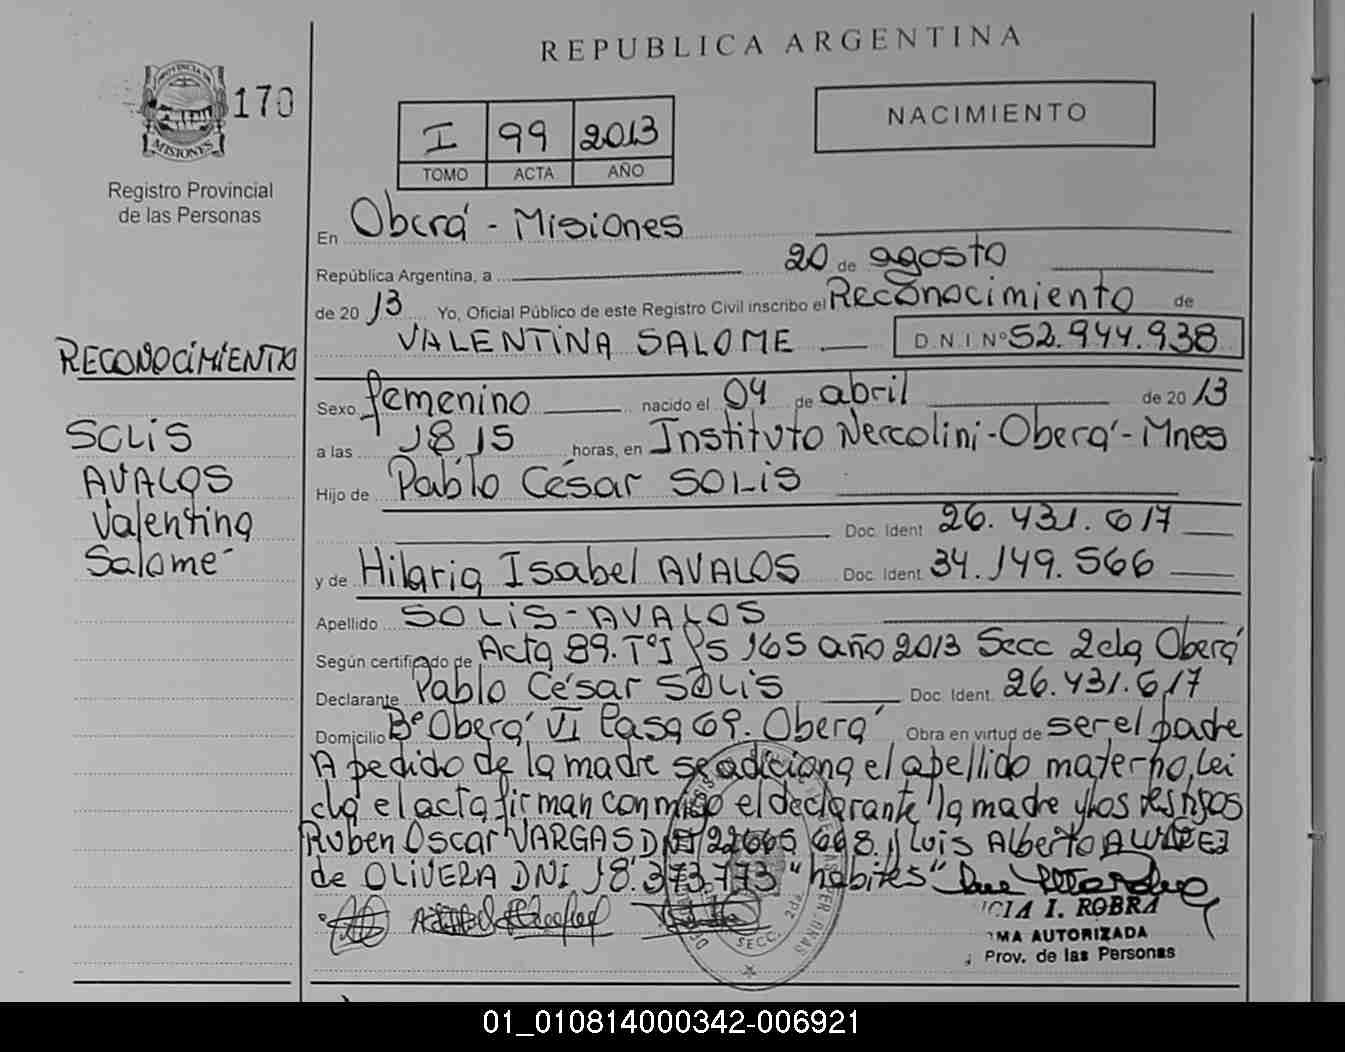 REPUBLICA ARGENTINA
PROVINCIA DE
MISIONES
170
Registro Provincial
de las Personas
I 99 2013
TOMO ACTA AÑO
NACIMIENTO
En Oberá - Misiones
República Argentina, a 20 de agosto
de 2013 Yo, Oficial Público de este Registro Civil inscribo el Reconocimiento de
VALENTINA SALOME D N I Nº 52.944.938
RECONOCIMIENTO
SOLIS
AVALOS
Valentina
Salomé
Sexo femenino nacido el 04 de abril de 2013
a las 18 15 horas, en Instituto Nercolini-Oberá-Mnes
Hijo de Pablo César SOLIS
Doc. Ident. 26.431.617
y de Hilaria Isabel AVALOS Doc. Ident. 34.149.566
Apellido SOLIS-AVALOS
Según certificado de Acta 89. TºI Fs 165 año 2013 Secc 2da Oberá
Declarante Pablo César SOLIS Doc. Ident. 26.431.617
Domicilio Bº Oberá VI Casa 69. Oberá Obra en virtud de ser el padre
A pedido de la madre se adiciona el apellido materno, Lei
da el acta firman conmigo el declarante la madre y los testigos
Ruben Oscar VARGAS DNI 22665 668 y Luis Alberto ALVAREZ
de OLIVERA DNI 18.373.773 "habiles"
CIA I. ROBRA
MA AUTORIZADA
Prov. de las Personas
SECC. 2da
01_010814000342-006921